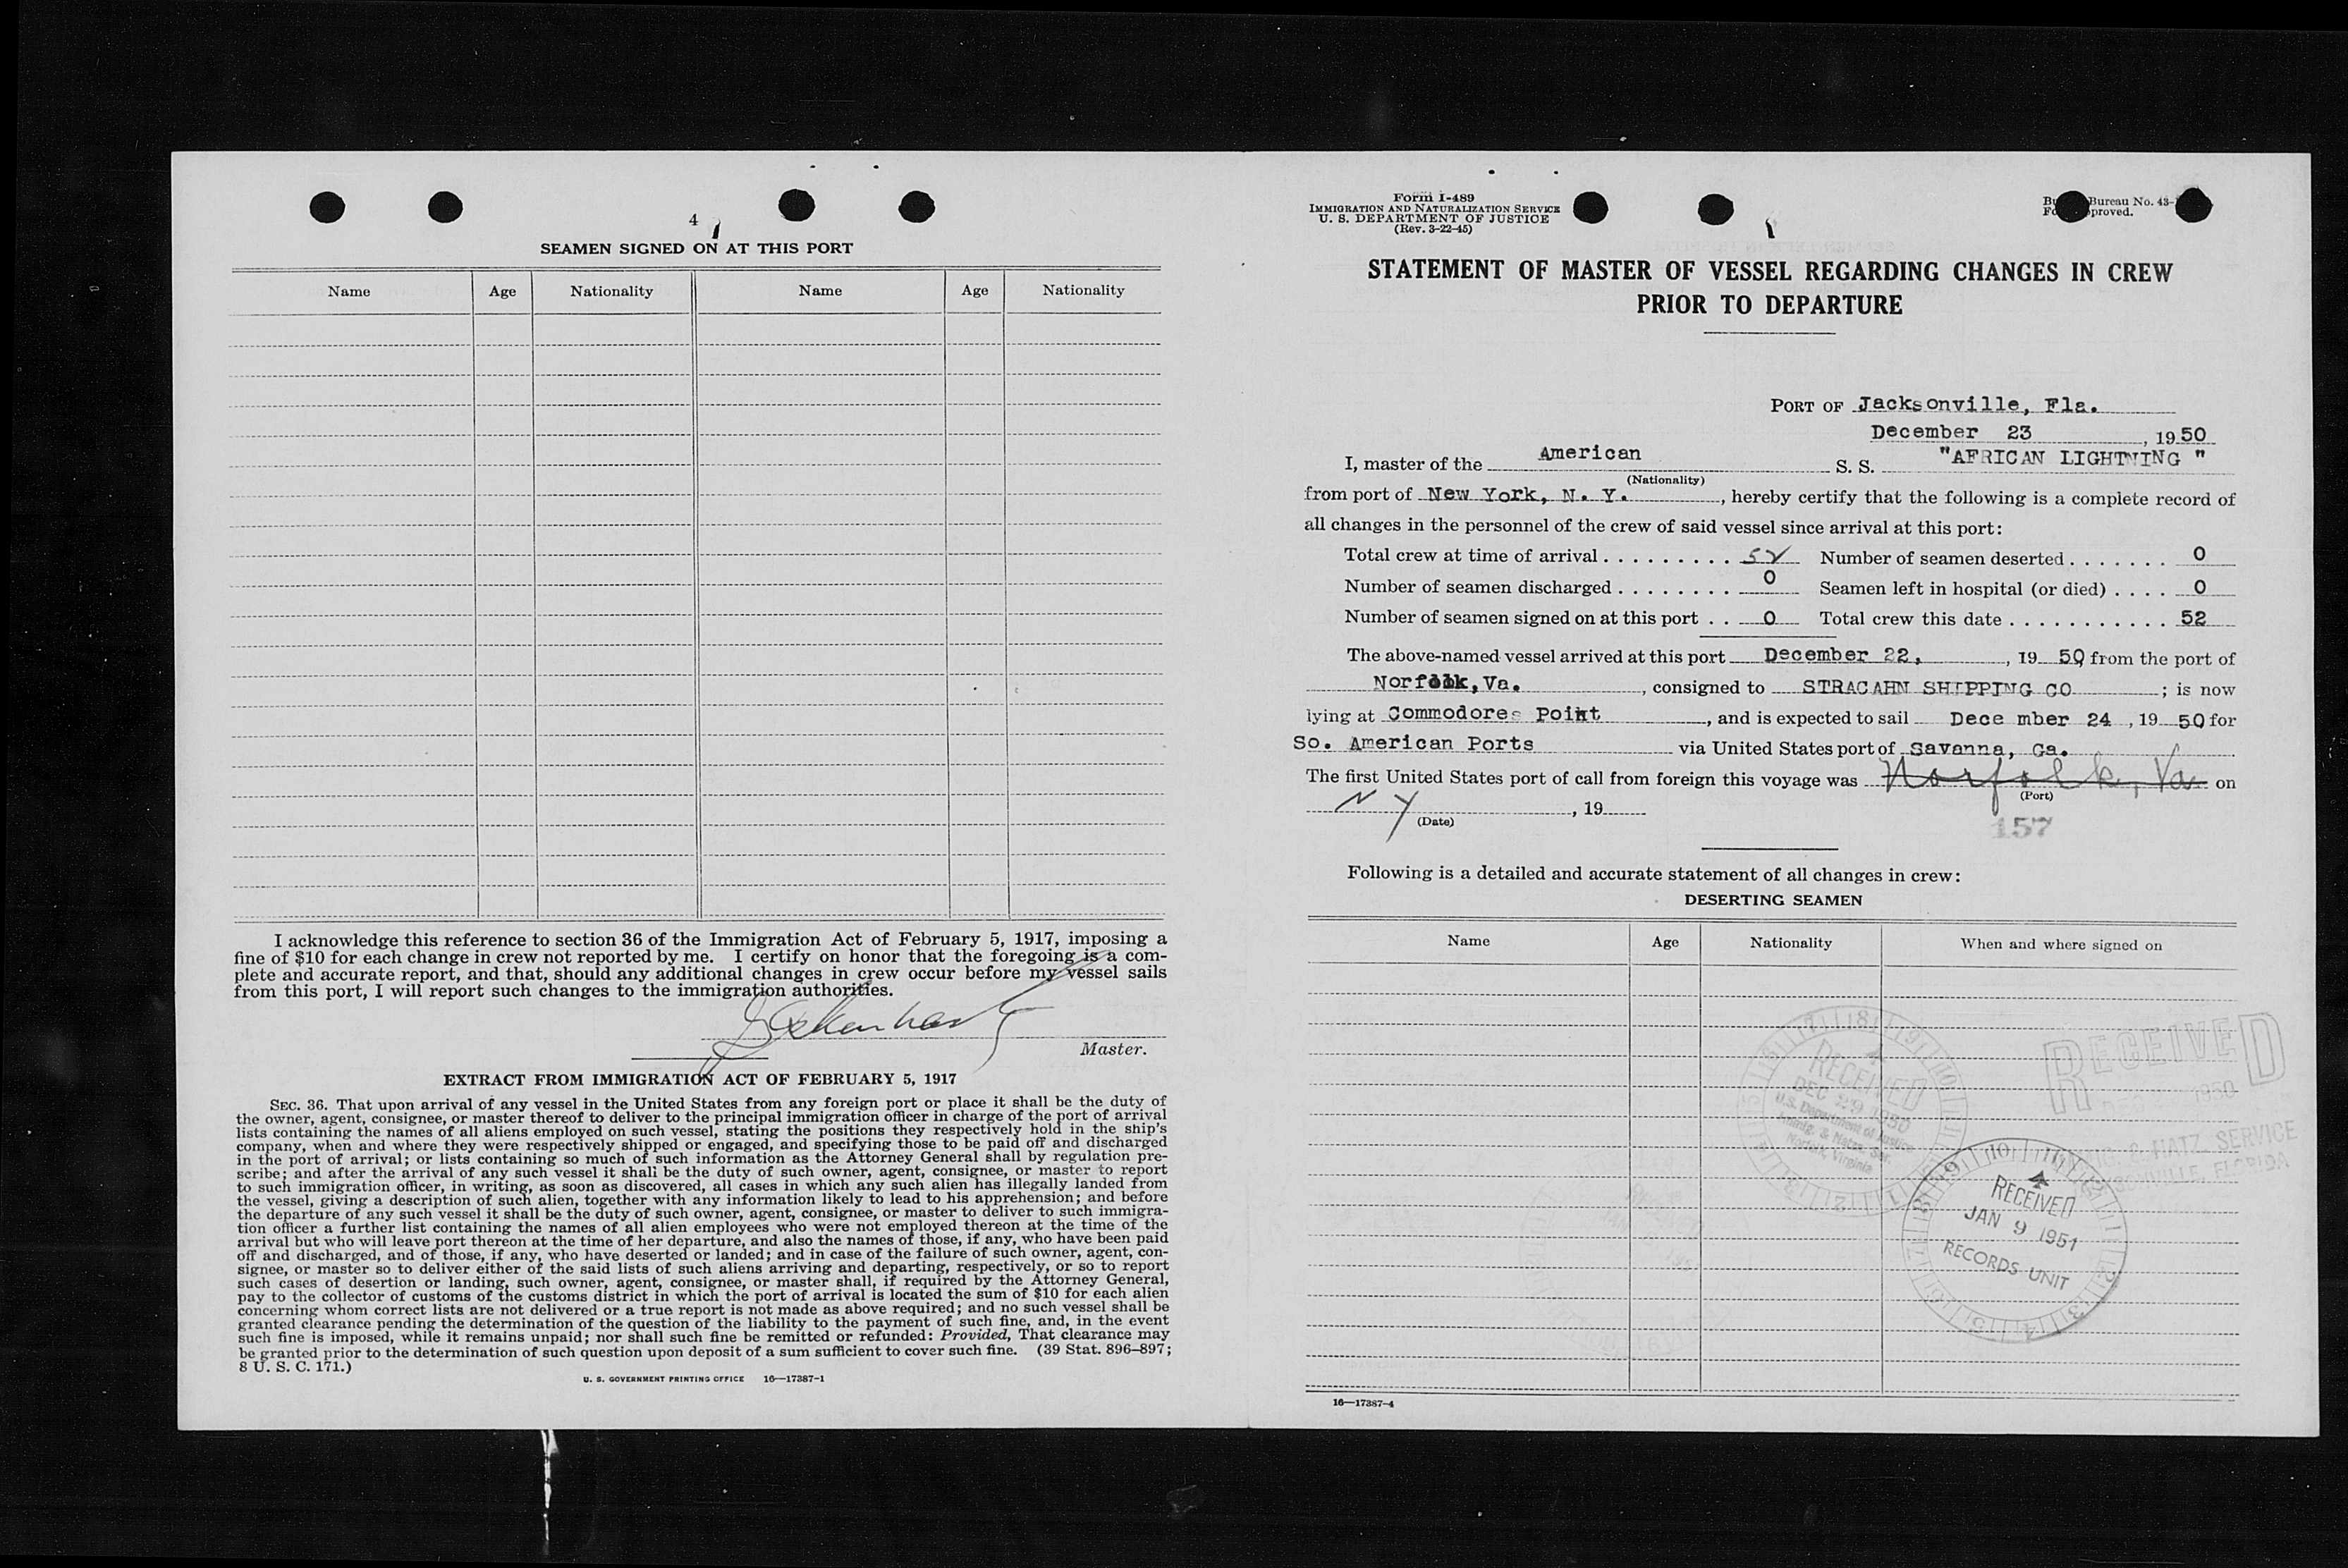 4
SEAMEN SIGNED ON AT THIS PORT
Name Age Nationality Name Age Nationality
I acknowledge this reference to section 36 of the Immigration Act of February 5, 1917, imposing a
fine of $10 for each change in crew not reported by me. I certify on honor that the foregoing is a com-
plete and accurate report, and that, should any additional changes in crew occur before my vessel sails
from this port, I will report such changes to the immigration authorities.
Master.
EXTRACT FROM IMMIGRATION ACT OF FEBRUARY 5, 1917
SEC. 36. That upon arrival of any vessel in the United States from any foreign port or place it shall be the duty of
the owner, agent, consignee, or master thereof to deliver to the principal immigration officer in charge of the port of arrival
lists containing the names of all aliens employed on such vessel, stating the positions they respectively hold in the ship's
company, when and where they were respectively shipped or engaged, and specifying those to be paid off and discharged
in the port of arrival; or lists containing so much of such information as the Attorney General shall by regulation pre-
scribe; and after the arrival of any such vessel it shall be the duty of such owner, agent, consignee, or master to report
to such immigration officer, in writing, as soon as discovered, all cases in which any such alien has illegally landed from
the vessel, giving a description of such alien, together with any information likely to lead to his apprehension; and before
the departure of any such vessel it shall be the duty of such owner, agent, consignee, or master to deliver to such immigra-
tion officer a further list containing the names of all alien employees who were not employed thereon at the time of the
arrival but who will leave port thereon at the time of her departure, and also the names of those, if any, who have been paid
off and discharged, and of those, if any, who have deserted or landed; and in case of the failure of such owner, agent, con-
signee, or master so to deliver either of the said lists of such aliens arriving and departing, respectively, or so to report
such cases of desertion or landing, such owner, agent, consignee, or master shall, if required by the Attorney General,
pay to the collector of customs of the customs district in which the port of arrival is located the sum of $10 for each alien
concerning whom correct lists are not delivered or a true report is not made as above required; and no such vessel shall be
granted clearance pending the determination of the question of the liability to the payment of such fine, and, in the event
such fine is imposed, while it remains unpaid; nor shall such fine be remitted or refunded: Provided, That clearance may
be granted prior to the determination of such question upon deposit of a sum sufficient to cover such fine. (39 Stat. 896–897;
8 U. S. C. 171.)
U. S. GOVERNMENT PRINTING OFFICE 16—17387-1
Form I-489
IMMIGRATION AND NATURALIZATION SERVICE
U. S. DEPARTMENT OF JUSTICE
(Rev. 3-22-45)
Bureau No. 43-
STATEMENT OF MASTER OF VESSEL REGARDING CHANGES IN CREW
PRIOR TO DEPARTURE
PORT OF Jacksonville, Fla.
December 23, 1950
I, master of the American S. S. "AFRICAN LIGHTNING "
(Nationality)
from port of New York, N. Y., hereby certify that the following is a complete record of
all changes in the personnel of the crew of said vessel since arrival at this port:
Total crew at time of arrival . . . . . . . . . 52 Number of seamen deserted . . . . . . . 0
Number of seamen discharged . . . . . . . . 0 Seamen left in hospital (or died) . . . . 0
Number of seamen signed on at this port . . 0 Total crew this date . . . . . . . . . . . 52
The above-named vessel arrived at this port December 22, , 19 50 from the port of
Norfolk, Va. , consigned to STRACAHN SHIPPING CO ; is now
lying at Commodores Point , and is expected to sail Dece mber 24 , 19 50 for
So. American Ports via United States port of Savanna, Ga.
The first United States port of call from foreign this voyage was Norfolk, Va on
(Port)
N Y , 19
(Date)
157
Following is a detailed and accurate statement of all changes in crew:
DESERTING SEAMEN
Name Age Nationality When and where signed on
RECEIVED
DEC 29 1950
U.S. Department of Justice
Immig. & Natz. Ser.
Norfolk, Virginia
RECEIVED
1950
& NATZ. SERVICE
FLORIDA
RECEIVED
JAN 9 1951
RECORDS UNIT
16—17387-4